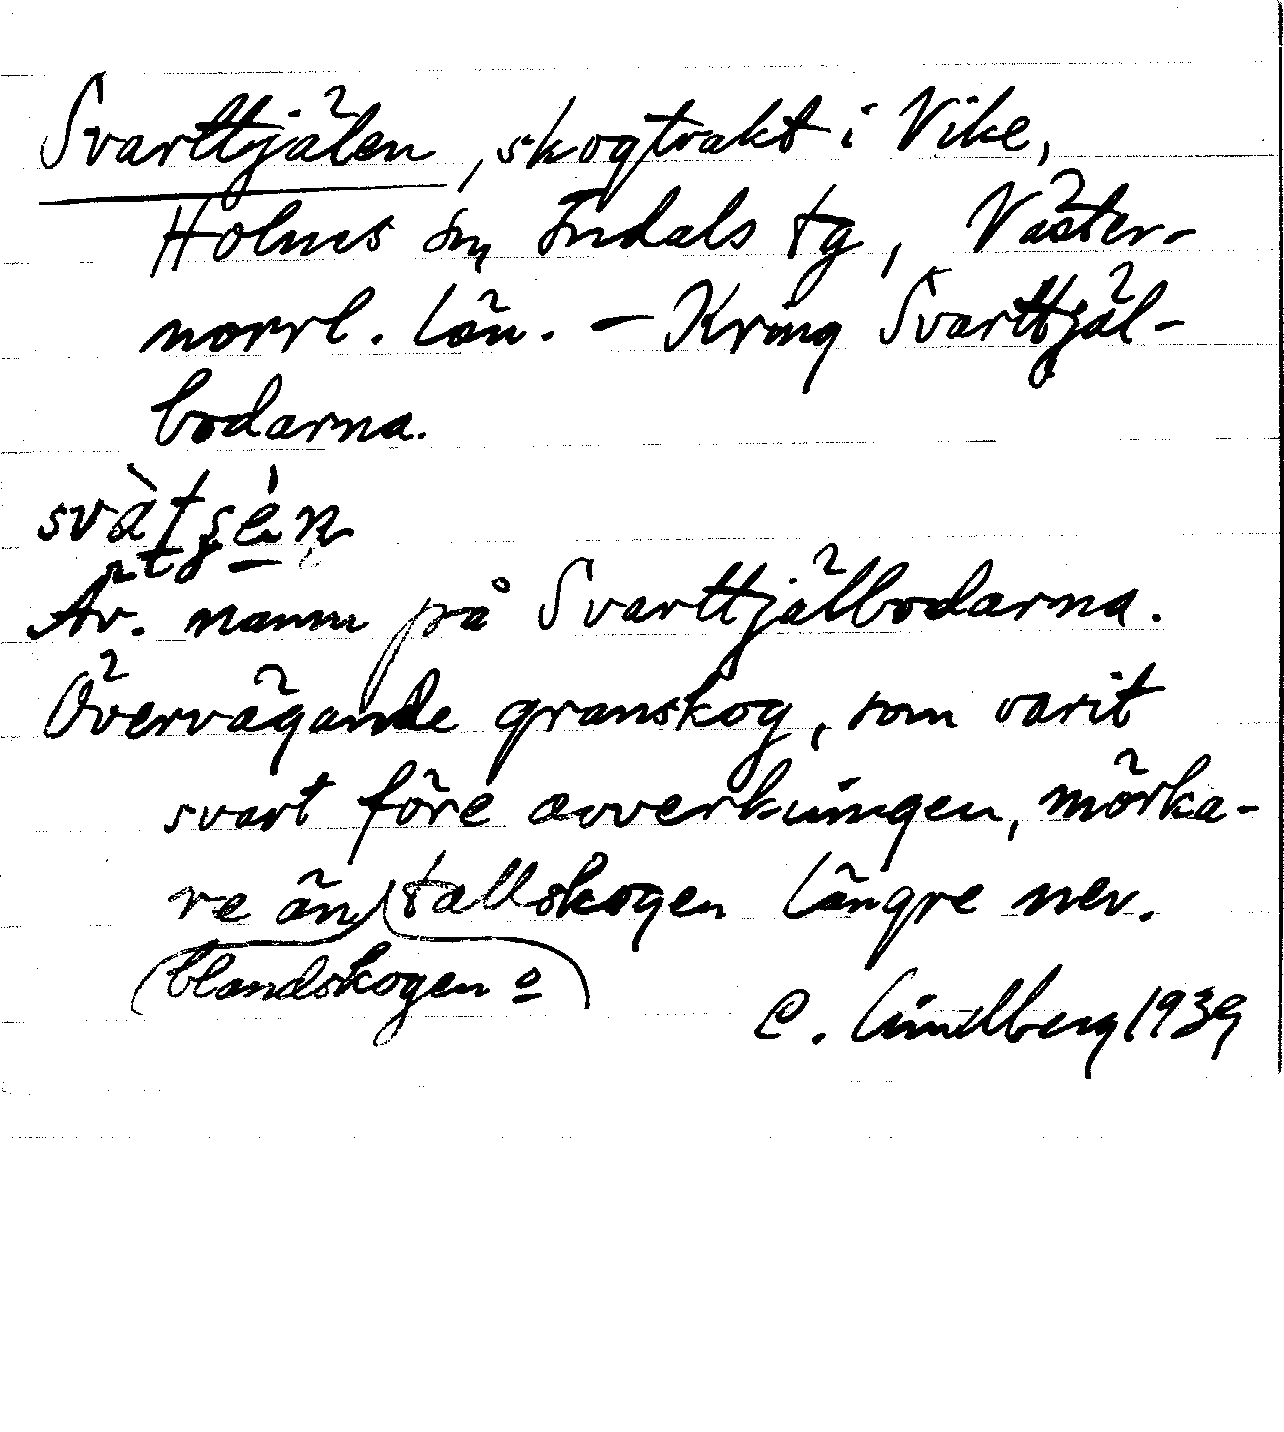 Svarttjälen, skogtrakt i Vike,
Holms sn, Indals tg, Väster-
norrl. län. - Kring Svarttjäl-
bodarna.
Äv. namn på Svarttjälbodarna.
Övervägande granskog, som varit
svart före avverkningen, mörka-
re än tallskogen längre ner.
blandskogen o
C. Lindberg 1939